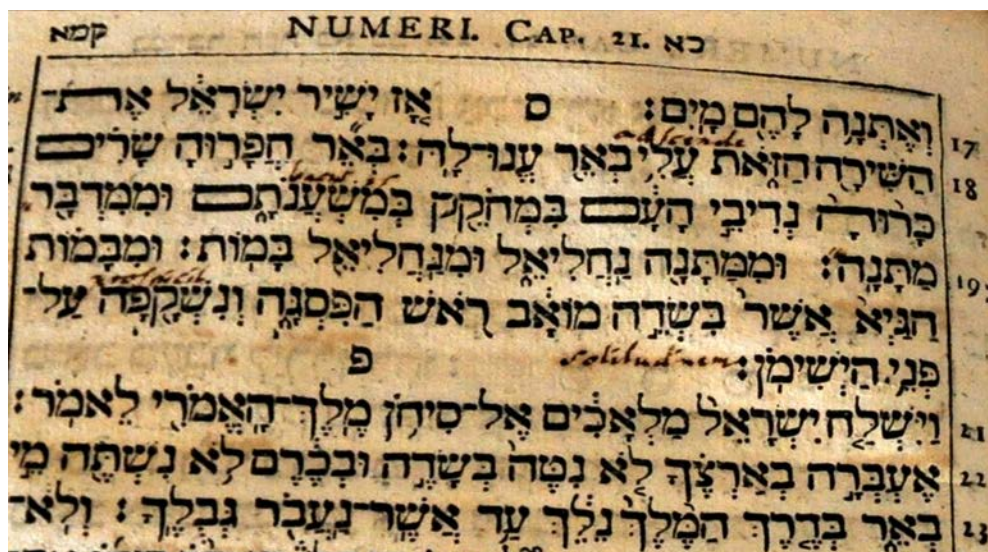 קמא NUMERI. CAP. 21. כא
17 וְאֶתְּנָה לָהֶם מָיִם׃ ס אָז יָשִׁיר יִשְׂרָאֵל אֶת־
ascende
18 הַשִּׁירָה הַזֹּאת עֲלִי בְאֵר עֱנוּ־לָהּ׃ בְּאֵר חֲפָרוּהָ שָׂרִים
כָּרוּהָ נְדִיבֵי הָעָם בִּמְחֹקֵק בְּמִשְׁעֲנֹתָם וּמִמִּדְבָּר
19 מַתָּנָה׃ וּמִמַּתָּנָה נַחֲלִיאֵל וּמִנַּחֲלִיאֵל בָּמוֹת׃ וּמִבָּמוֹת
הַגַּיְא אֲשֶׁר בִּשְׂדֵה מוֹאָב רֹאשׁ הַפִּסְגָּה וְנִשְׁקָפָה עַל־
פְּנֵי הַיְשִׁימֹן׃ solitudinem פ
21 וַיִּשְׁלַח יִשְׂרָאֵל מַלְאָכִים אֶל־סִיחֹן מֶלֶךְ־הָאֱמֹרִי לֵאמֹר׃
22 אֶעְבְּרָה בְאַרְצֶךָ לֹא נִטֶּה בְּשָׂדֶה וּבְכֶרֶם לֹא נִשְׁתֶּה מֵי
23 בְאֵר בְּדֶרֶךְ הַמֶּלֶךְ נֵלֵךְ עַד אֲשֶׁר־נַעֲבֹר גְּבֻלֶךָ׃ וְלֹא־